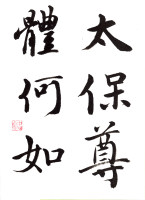 太保尊
體何如